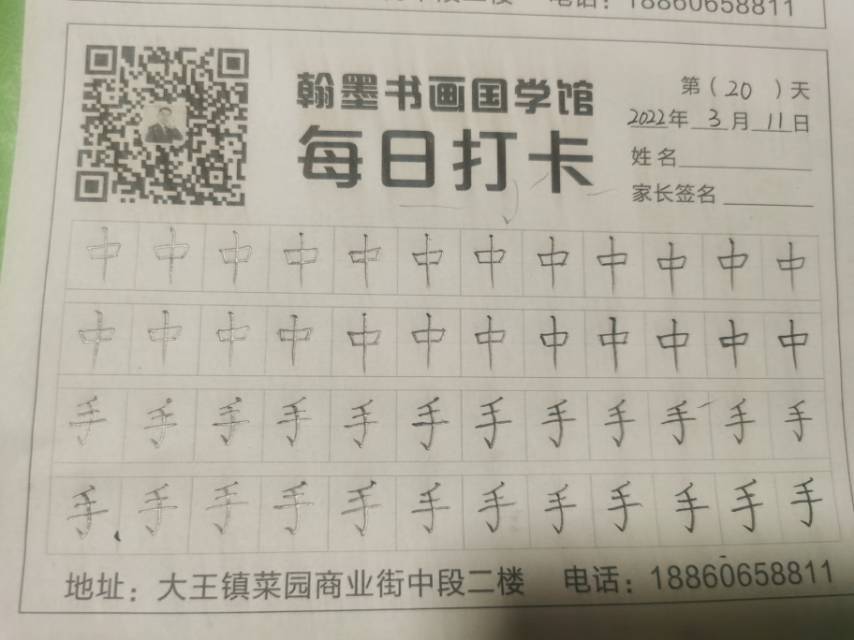 电话：18860658811
翰墨书画国学馆
每日打卡
第（20）天
2022年3月11日
姓名
家长签名
中中中中中中中中中中中中
中中中中中中中中中中中中
手手手手手手手手手手手手
手手手手手手手手手手手手
地址：大王镇菜园商业街中段二楼 电话：18860658811